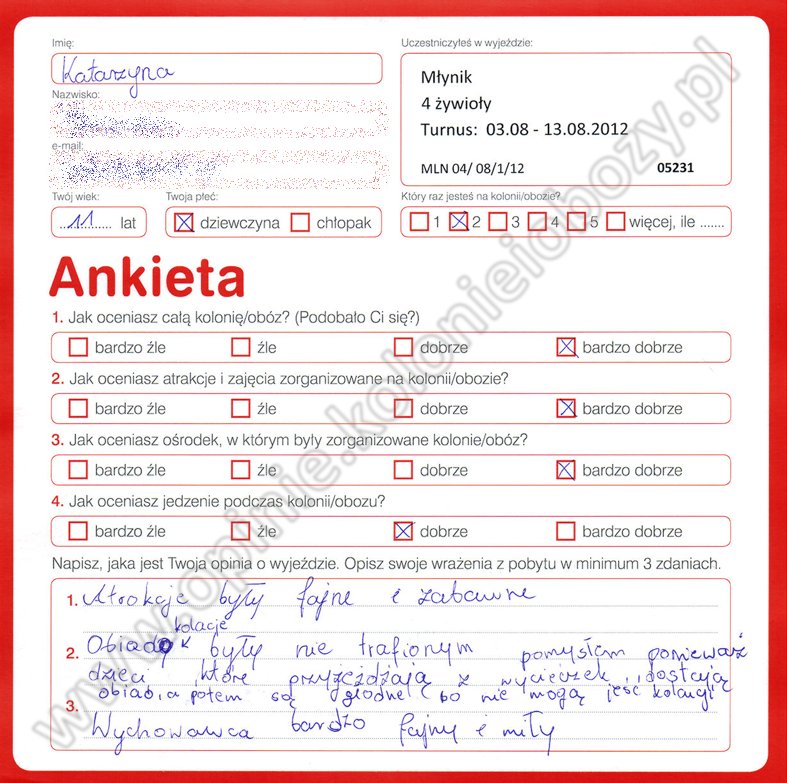 Imię:
Katarzyna
Nazwisko:
e-mail:
Twój wiek:
11 lat
Twoja płeć:
dziewczyna chłopak
Uczestniczyłeś w wyjeździe:
Młynik
4 żywioły
Turnus: 03.08 - 13.08.2012
MLN 04/ 08/1/12 05231
Który raz jesteś na kolonii/obozie?
1 2 3 4 5 więcej, ile .......
Ankieta
1. Jak oceniasz całą kolonię/obóz? (Podobało Ci się?)
bardzo źle źle dobrze bardzo dobrze
2. Jak oceniasz atrakcje i zajęcia zorganizowane na kolonii/obozie?
bardzo źle źle dobrze bardzo dobrze
3. Jak oceniasz ośrodek, w którym były zorganizowane kolonie/obóz?
bardzo źle źle dobrze bardzo dobrze
4. Jak oceniasz jedzenie podczas kolonii/obozu?
bardzo źle źle dobrze bardzo dobrze
Napisz, jaka jest Twoja opinia o wyjeździe. Opisz swoje wrażenia z pobytu w minimum 3 zdaniach.
1. Atrakcje były fajne i zabawne
kolacje
2. Obiado były nie trafionym pomysłem ponieważ
dzieci, które przyjeżdżają z wycieczek dostają
obiad, a potem są głodne (bo nie mogą jeść kolacji
3.
Wychowawca bardzo fajny i miły
www.opinie.kolonieiobozy.pl